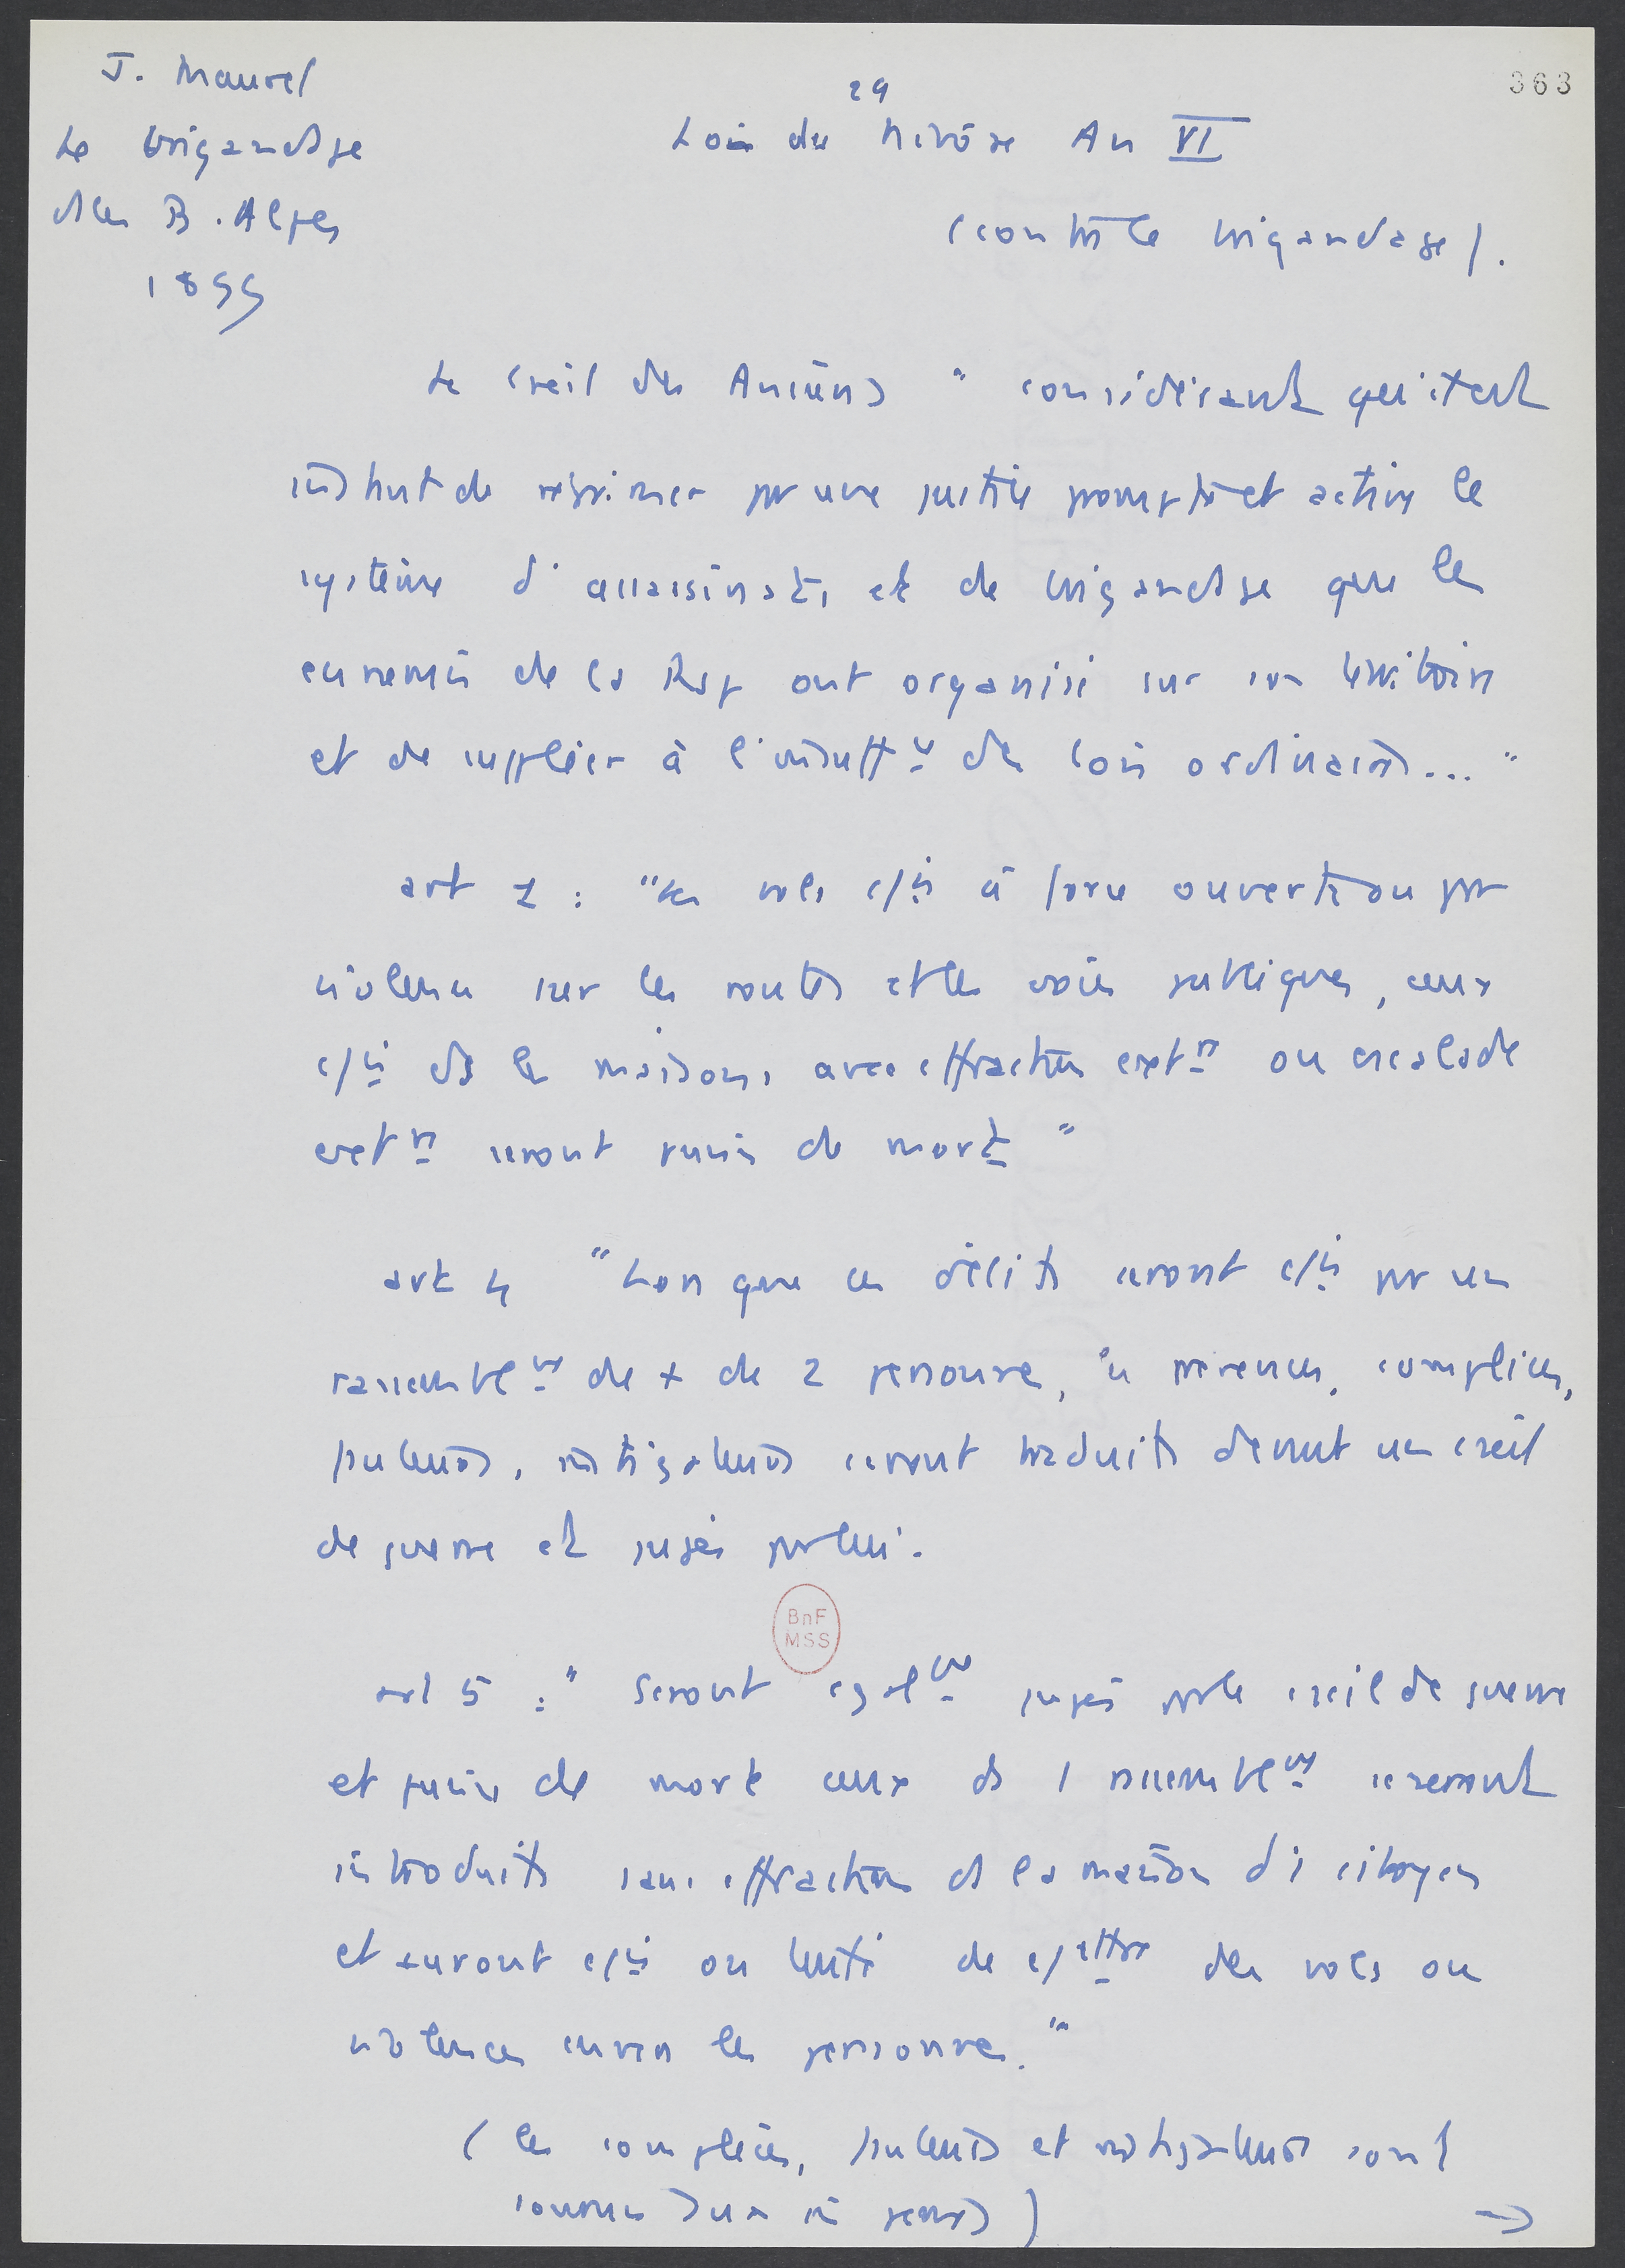 363
J. Maurel
Le brigandage
des B. Alpes
1899
29
Loi du Nivôse An VI
(contre le brigandage).
Le Cseil des Anciens " considérant qu'il est
instant de réprimer par une justice prompte et active le
système d'assassinats et de brigandage que les
ennemis de la Rep ont organisé sur son territoire
et de suppléer à l'insuffce des lois ordinaires... "
art 1 : " Les vols c/is à force ouverte ou par
violence sur les routes et les voies publiques, ceux
c/is ds les maisons, avec effraction extre ou escalade
extre seront punis de mort "
art 4 " Lorsque ces délits auront c/is par un
rassemblemt de + de 2 personnes, les prévenus, complices,
fauteurs, instigateurs seront traduits devant un cseil
de guerre et jugés par lui.
BnF
MSS
art 5 : " Seront egalmt jugés par le cseil de guerre
et punis de mort ceux ds 1 rassemblemt se seront
introduits sans effraction ds la maison d'1 citoyen
et auront c/is ou tenté de c/ettre des vols ou
violences envers les personnes. "
( les complices, fauteurs et instigateurs sont
soumis aux m̂ peines )
→